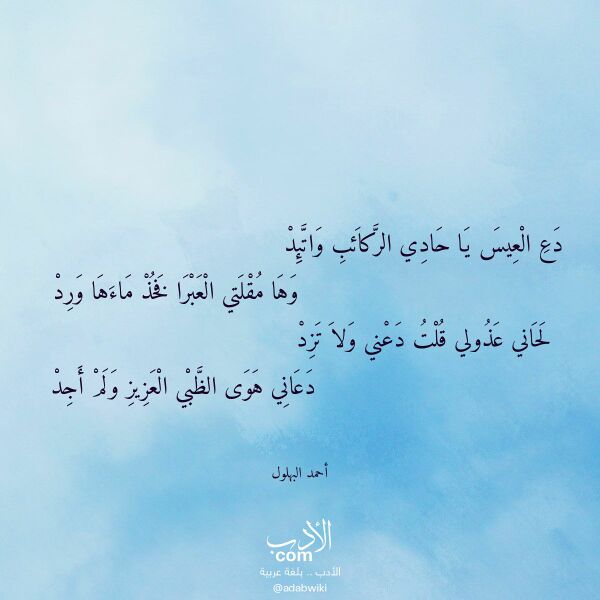 دَعِ الْعِيسَ يَا حَادِي الرَّكَائبِ وَاتَّئِدْ
وَهَا مُقْلَتي الْعَبْرَا فَخُذْ مَاءَهَا وَرِدْ
لَحَاني عَذُولي قُلْتُ دَعْني وَلاَ تَزِدْ
دَعَانِي هَوَى الظَّبْيِ الْعَزِيزِ وَلَمْ أَجِدْ
أحمد البهلول
الأدب
com
الأدب .. بلغة عربية
@adabwiki